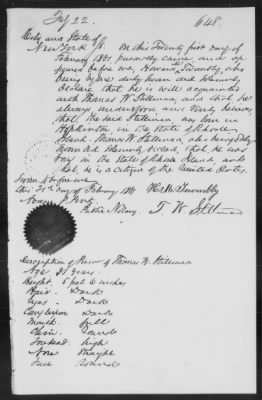 Feby 22.
648.
City and State of
New York ss. On this Twenty first day of
February 1861 personally came and ap
peared before me, Howard Trumbly, who
being by me duly sworn did solemnly
declare that he is well acquainted
with Thomas W. Stillman, and that he
always understood and verily believes
that the said Stillman was born in
Hopkinton in the State of Rhode
Island. Thomas W. Stillman, who being duly
sworn did solemnly declare, that he was
born in the State of Rhode Island, and
he, is a citizen of the United States.
Sworn before me
this 21st day of February 1861
New York
Public Notary.
T. W. Stillman
Description of Person of Thomas W. Stillman
Age years.
Height. 5 feet 6 inches
Hair. Dark
Eyes. Dark
Complexion. Dark
Mouth. full
Chin. round
Forehead. high
Nose. straight
Face round